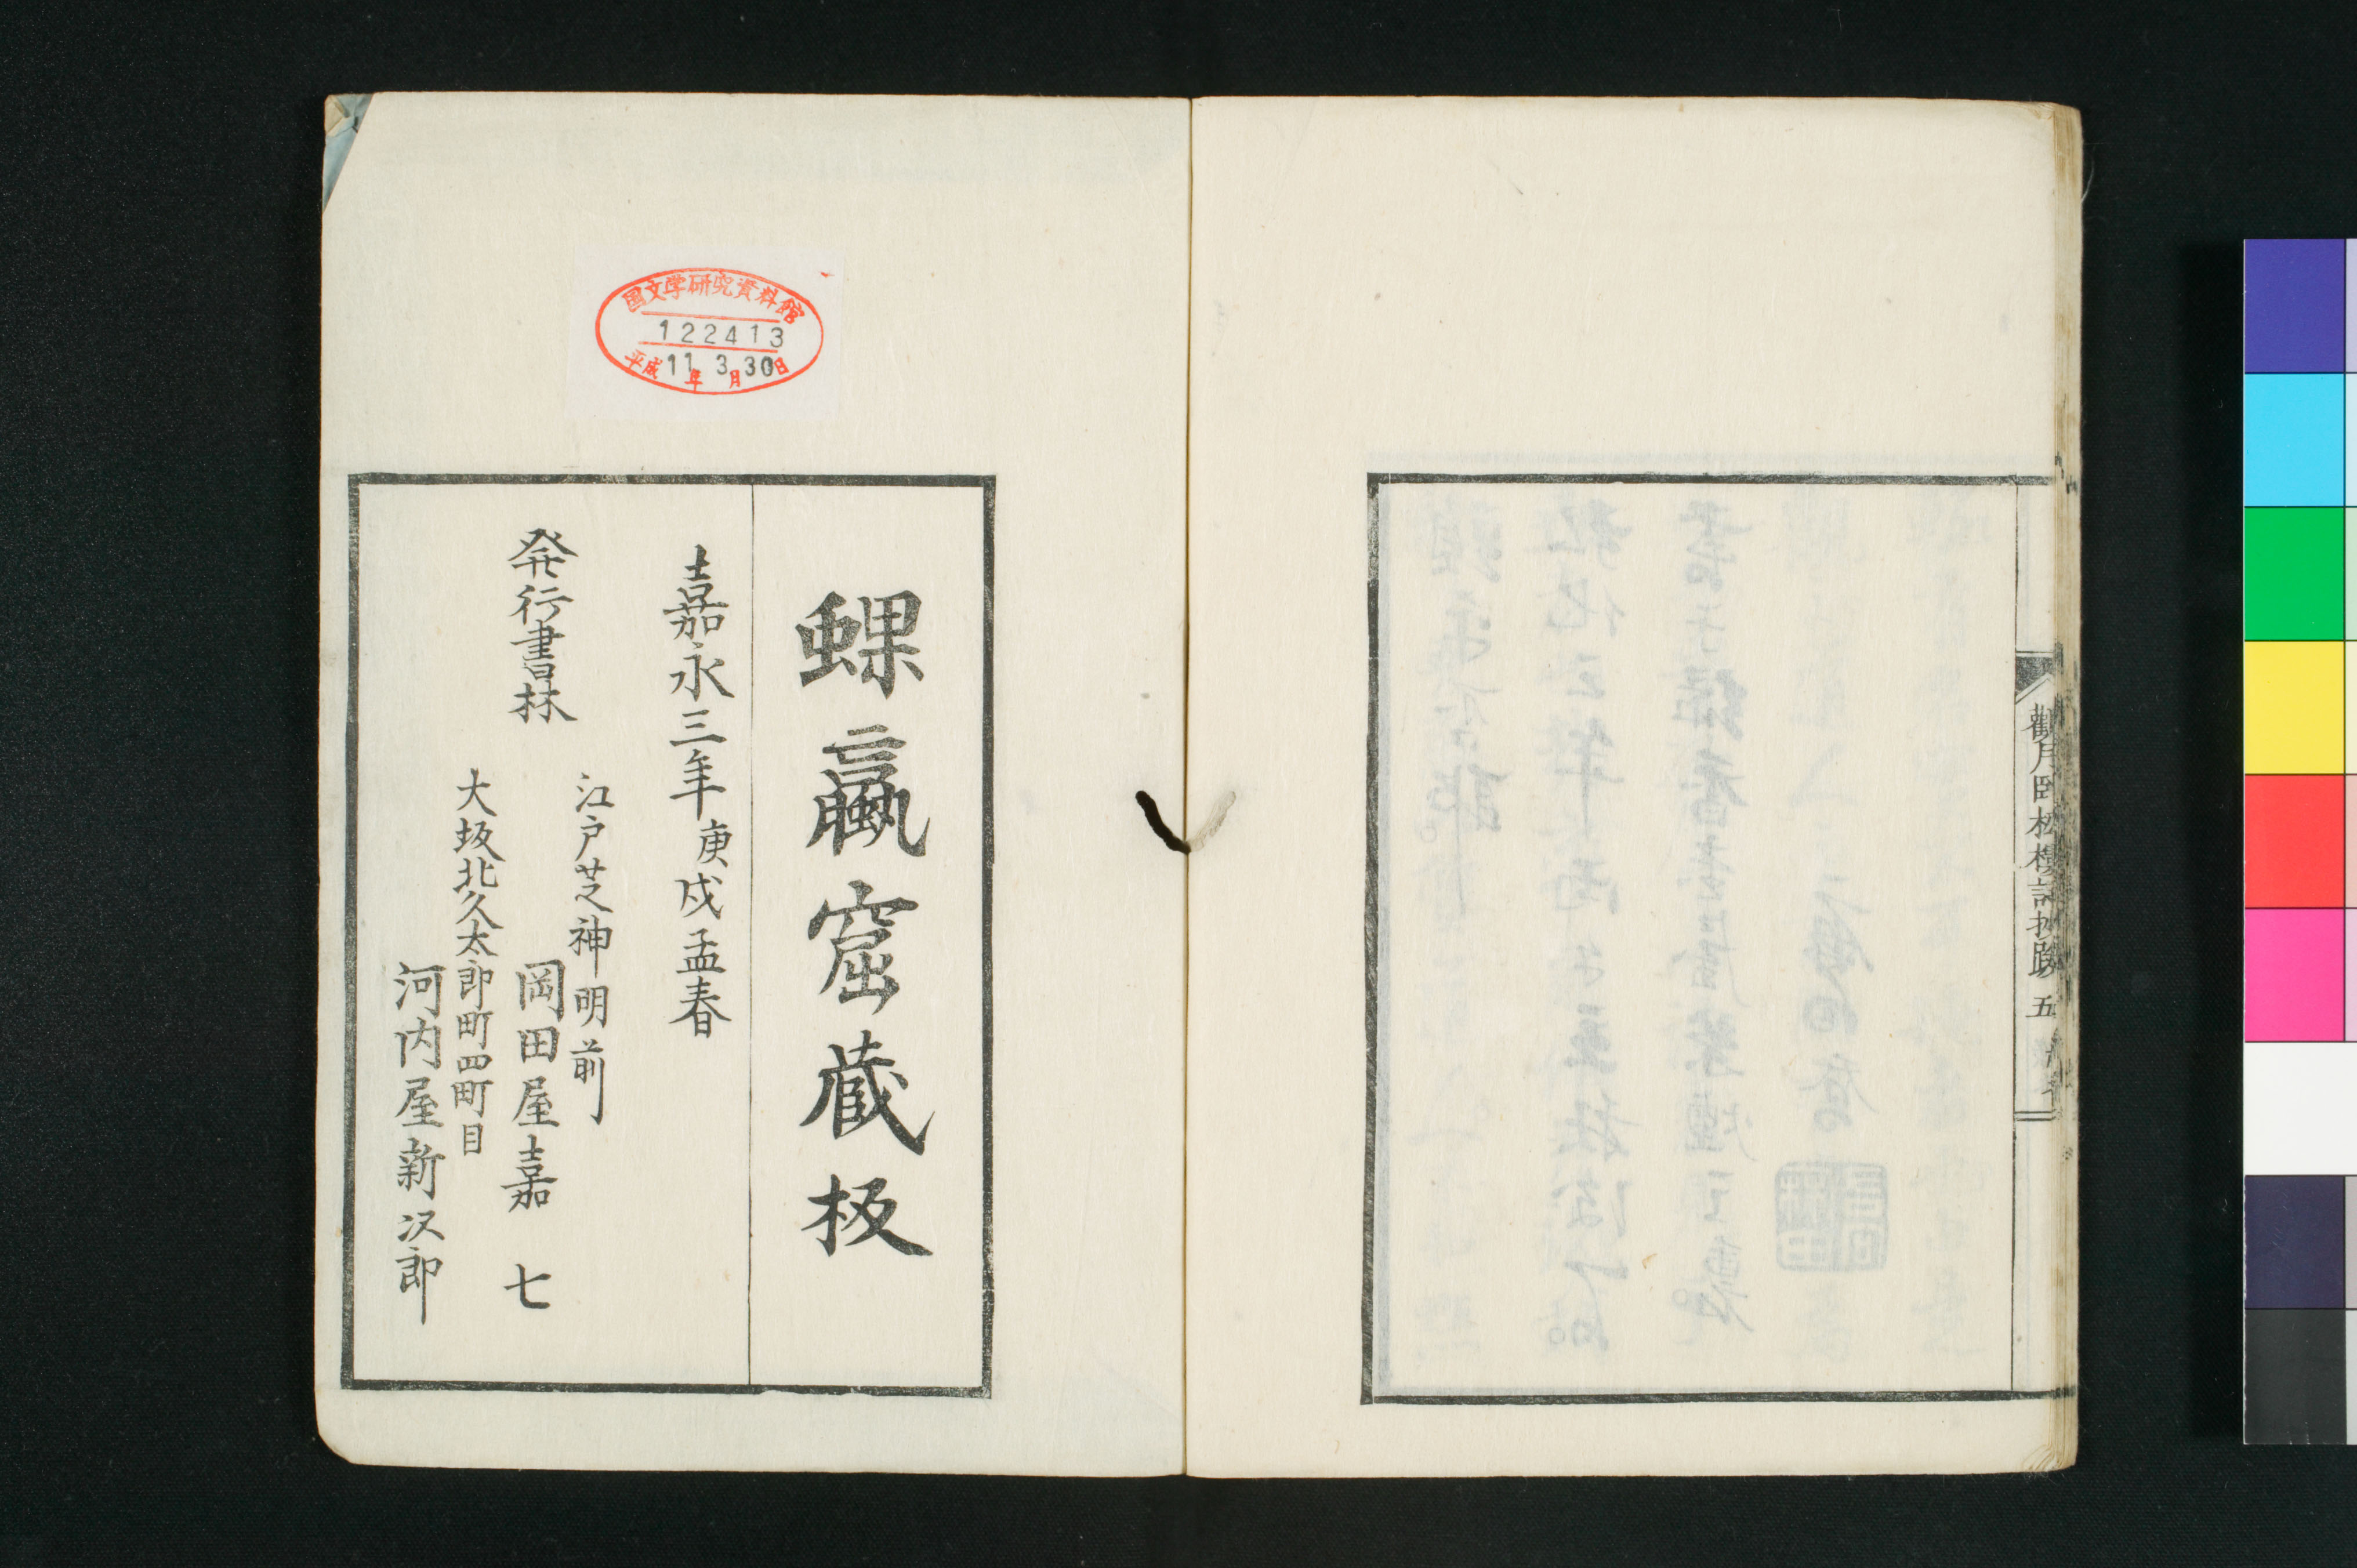 觀月臥松樓詩抄跋 五
蜾蠃窟蔵板
嘉永三年庚戌孟春
発行書林
江戸芝神明前
岡田屋嘉七
大坂北久太郎町四町目
河内屋新次郎
国文学研究資料館
122413
平成11年3月30日